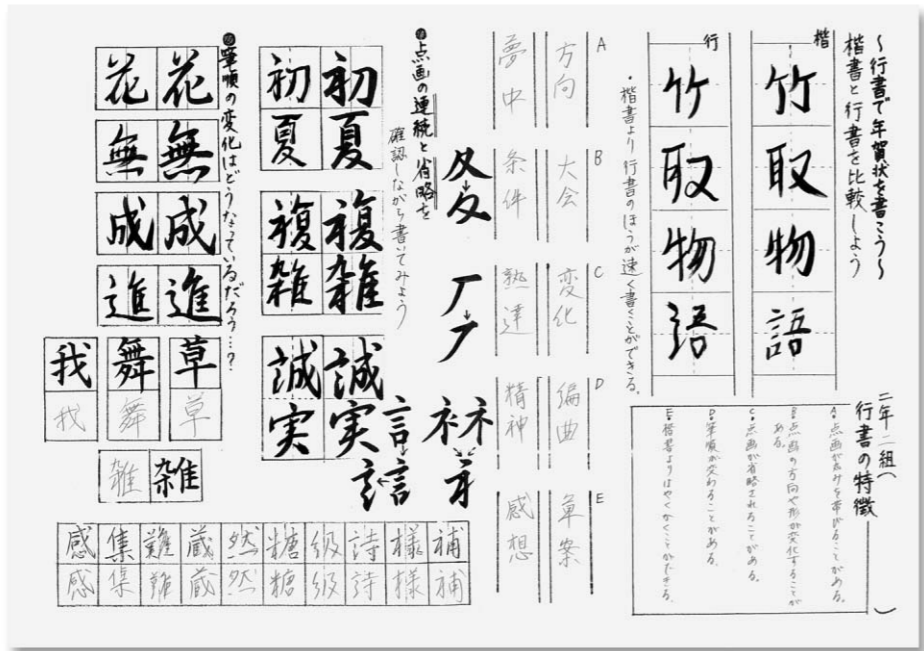 〜行書で年賀状を書こう〜
楷書と行書を比較しよう
二年二組( )
楷
竹取物語
行
竹取物語
・楷書より行書のほうが速く書くことができる。
行書の特徴
A・点画が丸みを帯びることがある。
B・点画の方向や形が変化することが
ある。
C・点画が省略されることがある。
D・筆順が変わることがある。
E・楷書よりはやくかくことができる。
A
方向
夢中
B
大会
条件
C
変化
熟達
D
編曲
精神
E
草案
感想
点画の連続と省略を
確認しながら書いてみよう
初夏
初夏
複雑
複雑
誠実
誠実
筆順の変化はどうなっているだろう…?
花花
無無
成成
進進
草
草
舞
舞
我
我
雑
雑
補様詩級糖然蔵難集感
補様詩級糖然蔵難集感